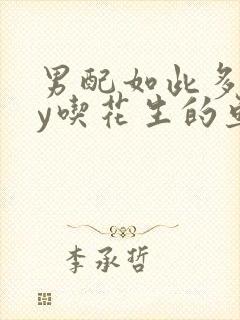 男配如此多
y喫花生的
李承哲